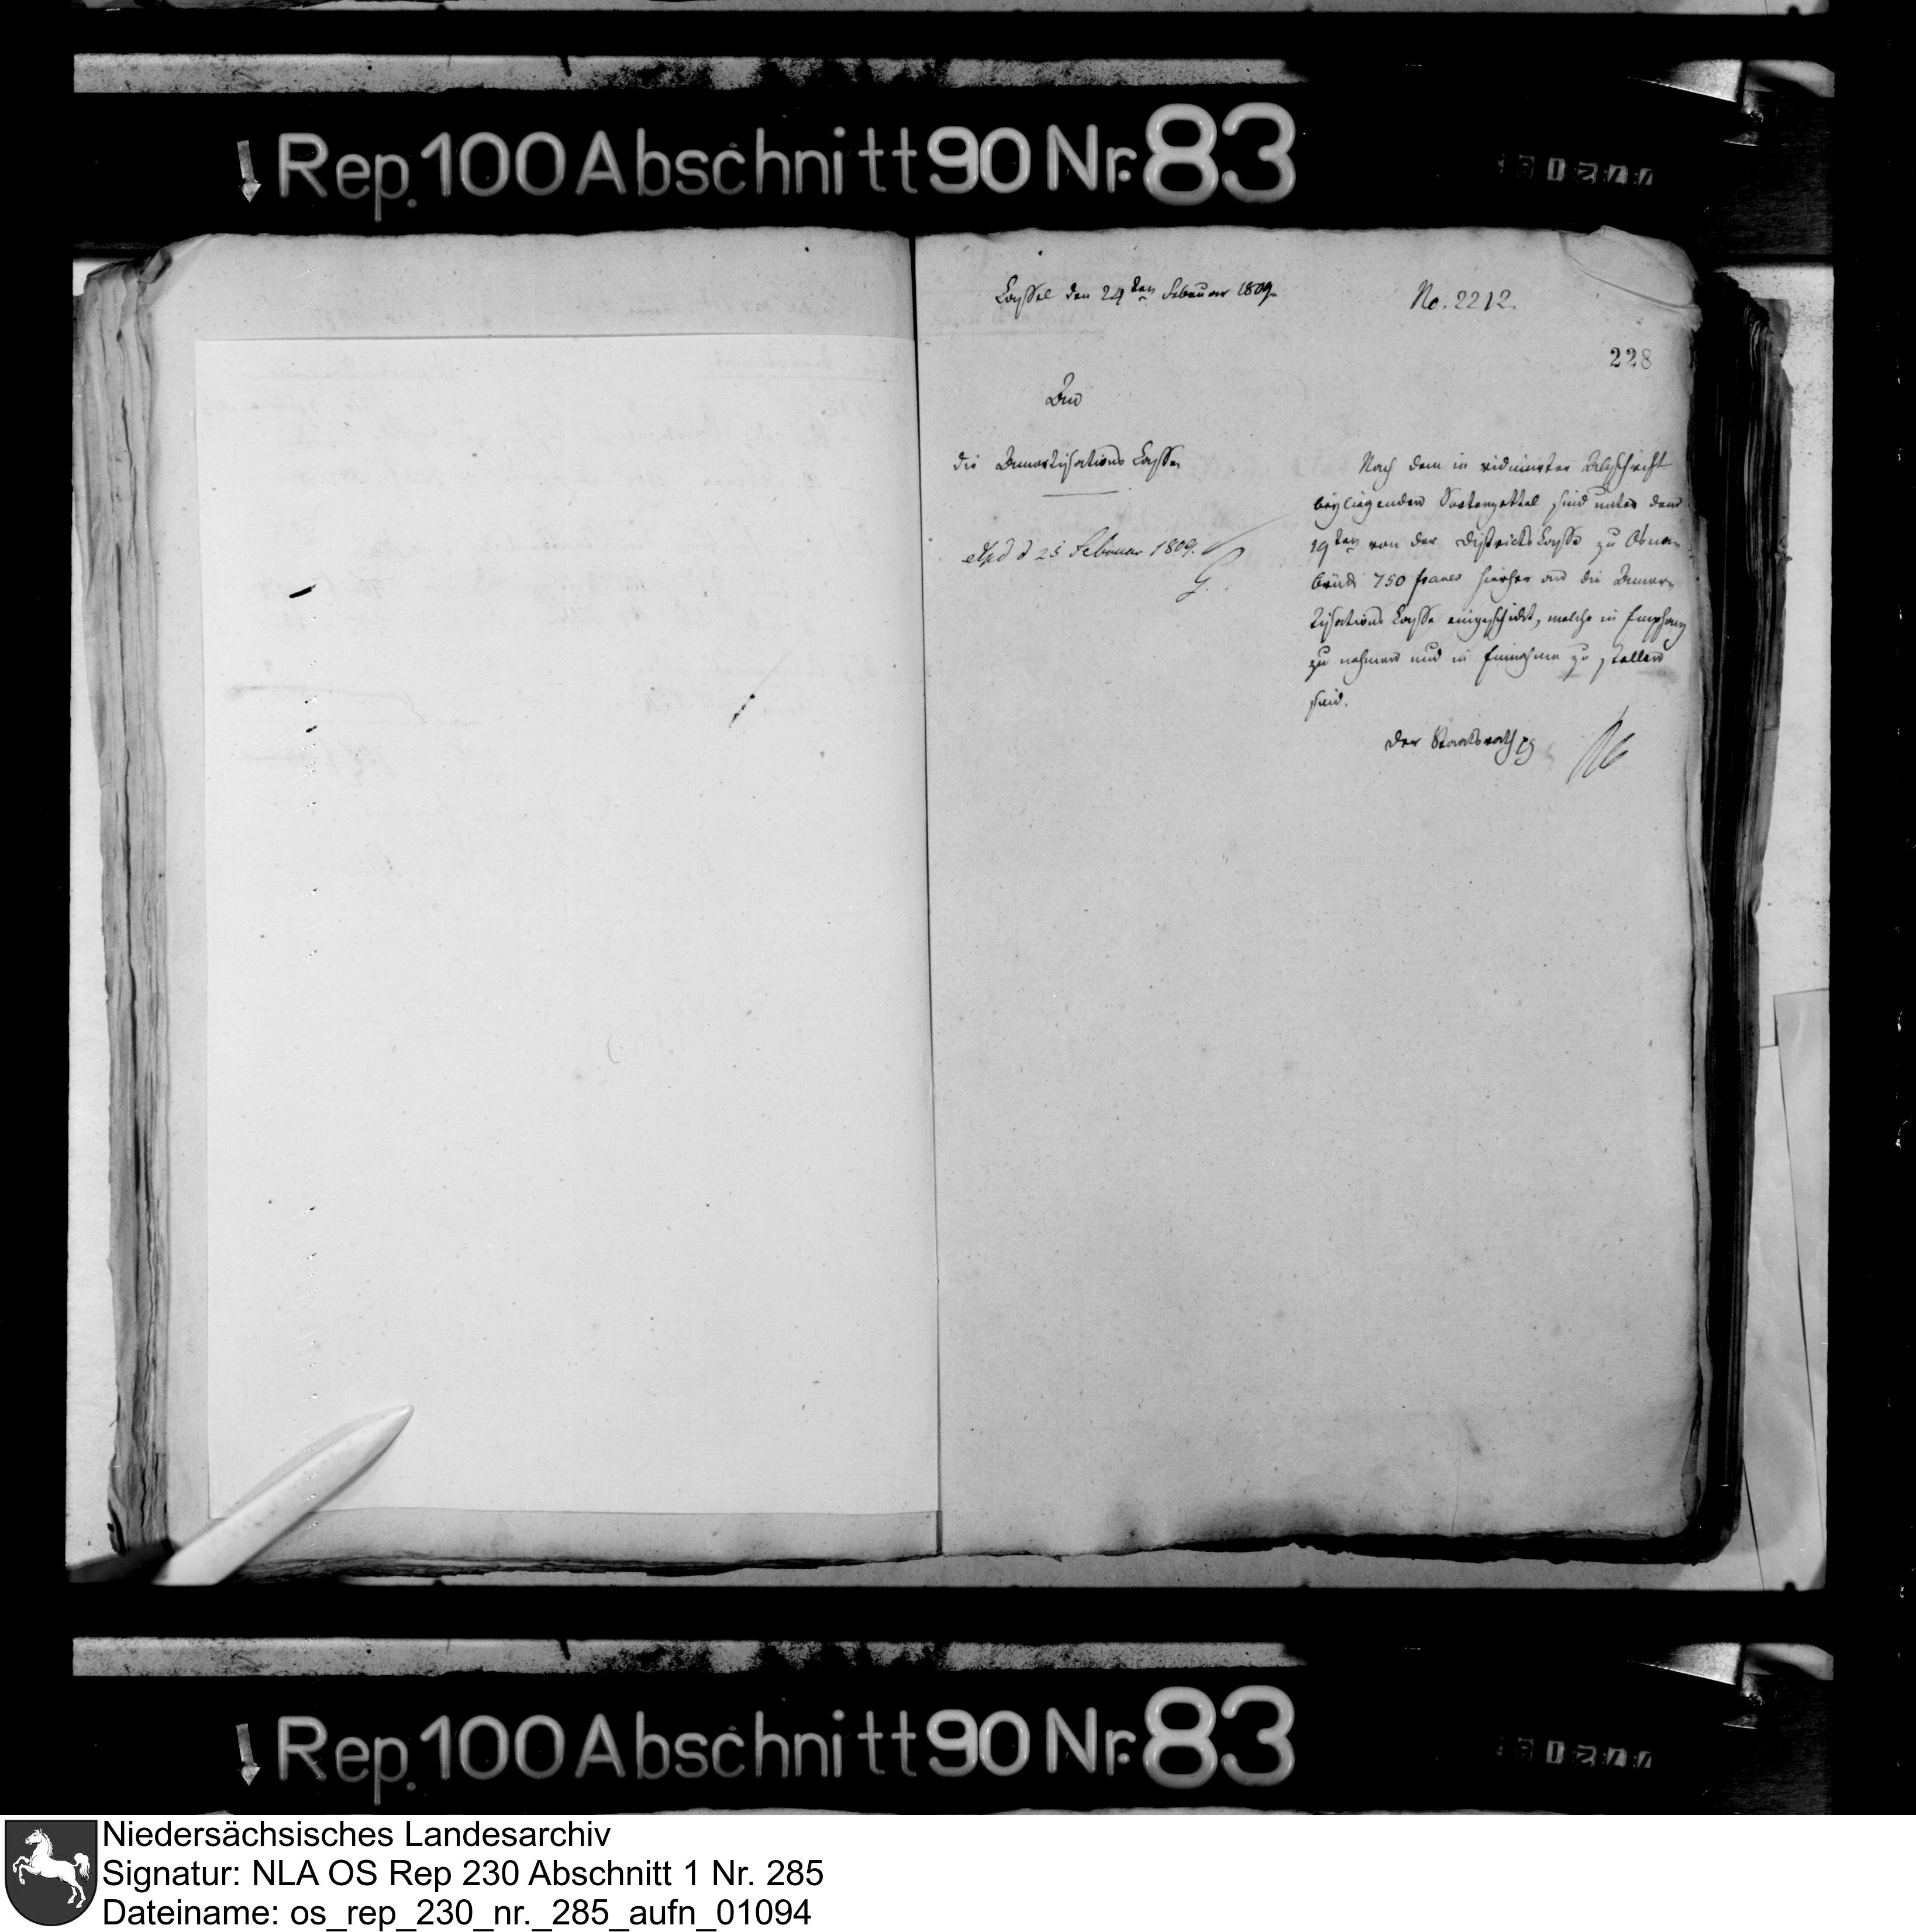 Rep. 100 Abschnitt 90 Nr. 83
Cassel den 24ten Februar 1809.
No. 2212.
228
An
die Amortisations Casse
Nach dem in vidimirter Abschrift
beyliegenden Sortenzettel sind unter dem
19ten von der Districts Casse zu Osna-
brück 750 francs hierher an die Amor-
tisations Casse eingeschickt, welche in Empfang
zu nehmen und in Einnahme zu stellen
sind.
Der Staatsrath
d 25 Februar 1809.
G.
Rep. 100 Abschnitt 90 Nr. 83
Niedersächsisches Landesarchiv
Signatur: NLA OS Rep 230 Abschnitt 1 Nr. 285
Dateiname: os_rep_230_nr._285_aufn_01094